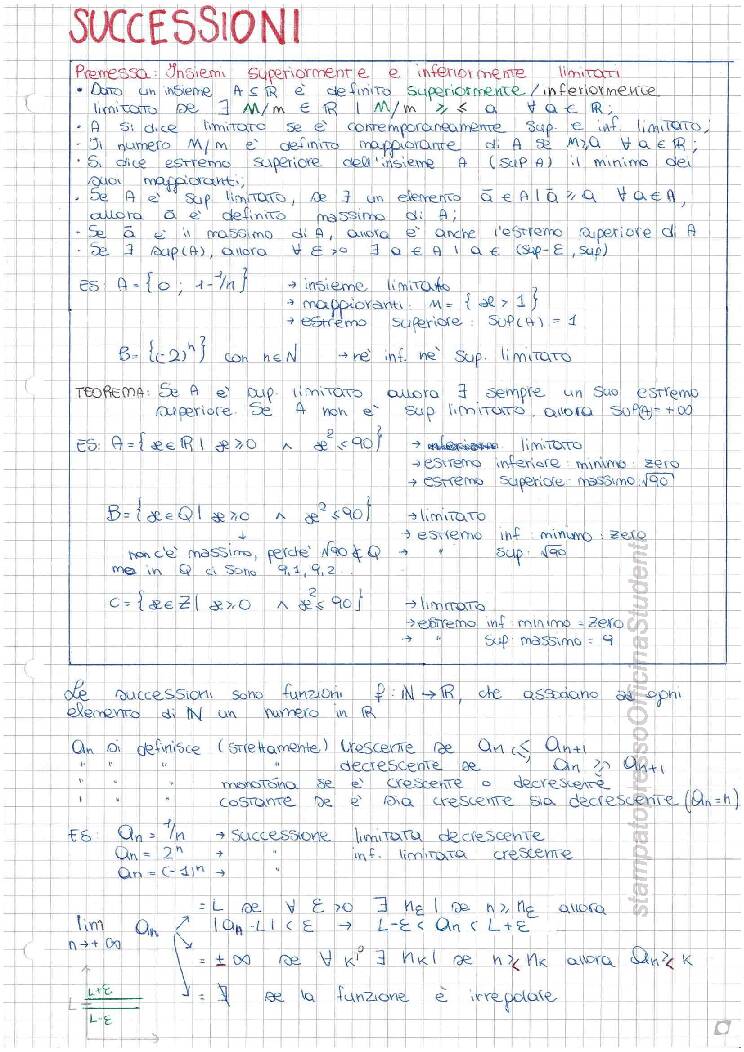 SUCCESSIONI
Premessa: Insiemi superiormente e inferiormente limitati
• Dato un insieme A ⊆ ℝ è definito superiormente/inferiormente
limitato se ∃ M/m ∈ ℝ | M/m ≥/≤ a ∀ a ∈ ℝ;
• A si dice limitato se è contemporaneamente sup. e inf. limitato;
• Il numero M/m è definito maggiorante di A se M≥a ∀ a ∈ ℝ;
• Si dice estremo superiore dell'insieme A (sup A) il minimo dei
suoi maggioranti;
• Se A è sup limitato, se ∃ un elemento ā ∈ A | ā ≥ a ∀ a ∈ A,
allora ā è definito massimo di A;
• Se ā è il massimo di A, allora è anche l'estremo superiore di A
• Se ∃ sup(A), allora ∀ ε>0 ∃ a ∈ A | a ∈ (sup-ε, sup)
ES: A = {0 ; 1-1/n} → insieme limitato
→ maggioranti: M = {x > 1}
→ estremo superiore: sup(A) = 1
B = {(-2)ⁿ} con n∈N → nè inf. nè sup. limitato
TEOREMA: Se A è sup. limitato allora ∃ sempre un suo estremo
superiore. Se A non è sup limitato, allora sup(A)=+∞
ES: A = {x∈ℝ | x≥0 ∧ x²≤90} → limitato
→ estremo inferiore: minimo: zero
→ estremo superiore: massimo: √90
B = {x∈Q | x≥0 ∧ x²≤90} → limitato
→ estremo inf: minimo: zero
non c'è massimo, perchè √90 ∉ Q → " sup: √90
ma in Q ci sono 9,1, 9,2...
C = {x∈Z | x≥0 ∧ x²≤90} → limitato
→ estremo inf: minimo = zero
→ " sup: massimo = 9
Le successioni sono funzioni f: ℕ → ℝ, che associano ad ogni
elemento di ℕ un numero in ℝ
an si definisce (strettamente) crescente se an ≤ an+1
" " " decrescente se an ≥ an+1
" " monotòna se è crescente o decrescente
" " costante se è sia crescente sia decrescente (an=n)
ES: an = 1/n → successione limitata decrescente
an = 2ⁿ → " inf. limitata crescente
an = (-1)ⁿ → "
= L se ∀ ε >0 ∃ nε | se n ≥ nε allora
lim n→+∞ an |an-L| < ε → L-ε < an < L+ε
= ±∞ se ∀ K ∃ nK | se n ≥ nK allora an ≷ K
= ∄ se la funzione è irregolare
L+ε
L
L-ε
stampatopressoOfficinaStudente